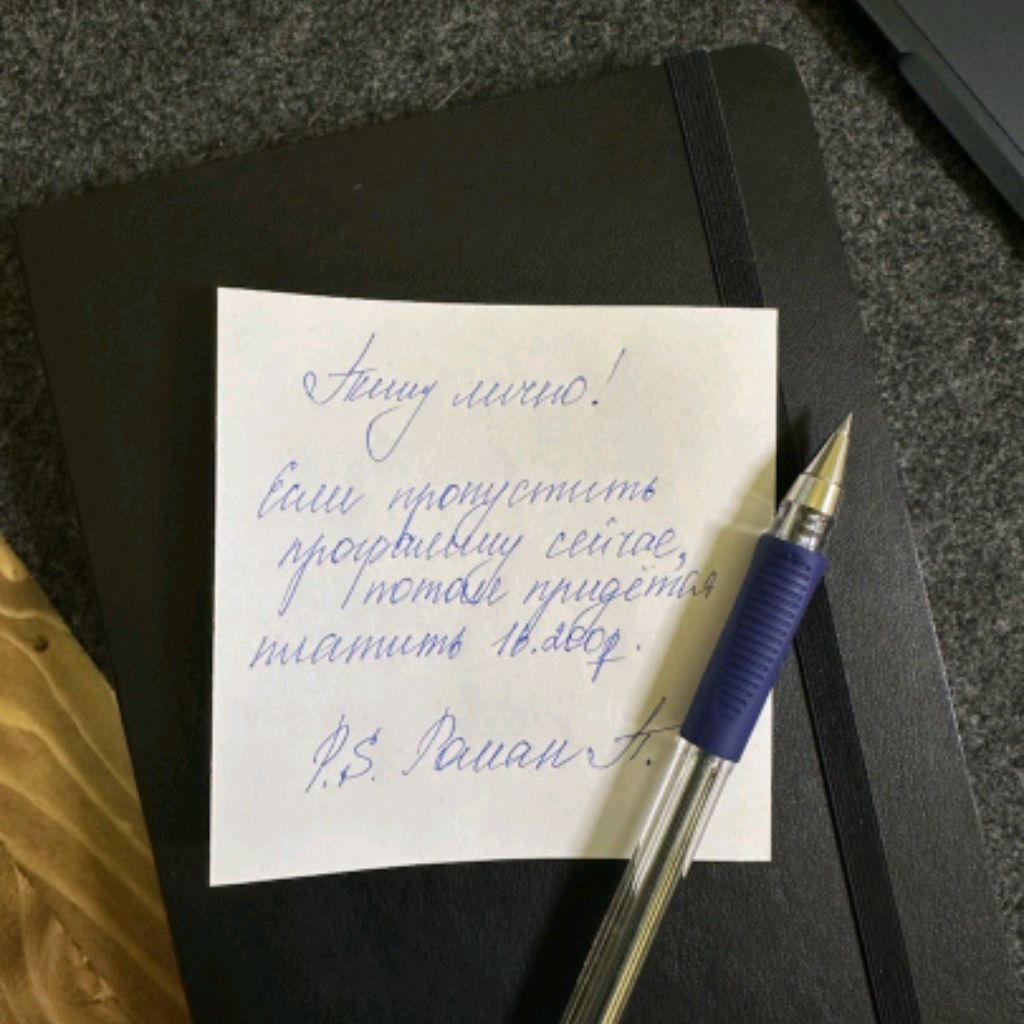 Пишу лично!
Если пропустить
программу сейчас,
потом придётся
платить 16.200р.
P.S. Роман А.